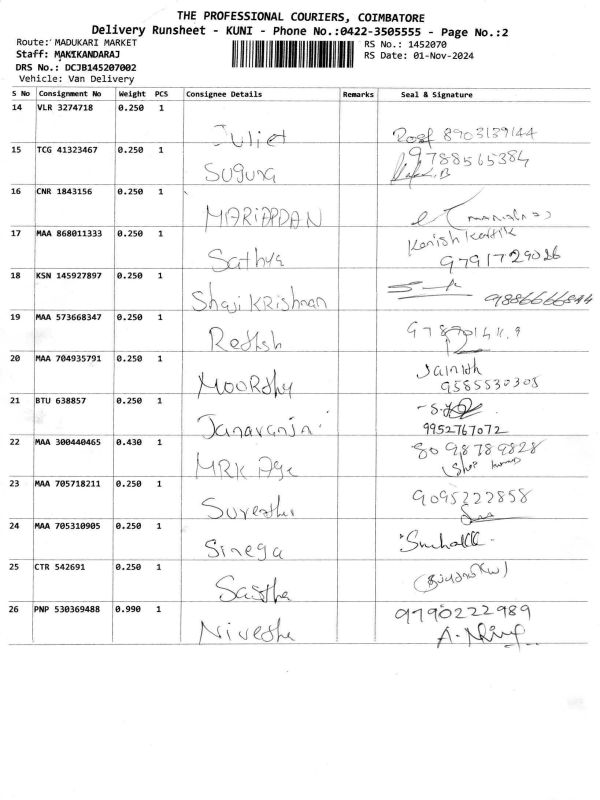 THE PROFESSIONAL COURIERS, COIMBATORE
Delivery Runsheet - KUNI - Phone No.:0422-3505555 - Page No.:2
Route: MADUKARI MARKET
RS No.: 1452070
Staff: MANIKANDARAJ
RS Date: 01-Nov-2024
DRS No.: DCJB145207002
Vehicle: Van Delivery
S No Consignment No Weight PCS Consignee Details Remarks Seal & Signature
14 VLR 3274718 0.250 1
Juliet 8903139144
15 TCG 41323467 0.250 1 9788565384
Suguna
16 CNR 1843156 0.250 1
MARIAPPAN
17 MAA 868011333 0.250 1 Kanish Kartik
Sathya 9791729026
18 KSN 145927897 0.250 1
Shaji Krishnan 9886666844
19 MAA 573668347 0.250 1
20 MAA 704935791 0.250 1
Moorthy 9585530305
21 BTU 638857 0.250 1
9952767072
22 MAA 300440465 0.430 1 8098789828
MRK Age
23 MAA 705718211 0.250 1 9095222858
24 MAA 705310905 0.250 1
Sinega
25 CTR 542691 0.250 1
26 PNP 530369488 0.990 1 9790222989
Nivetha